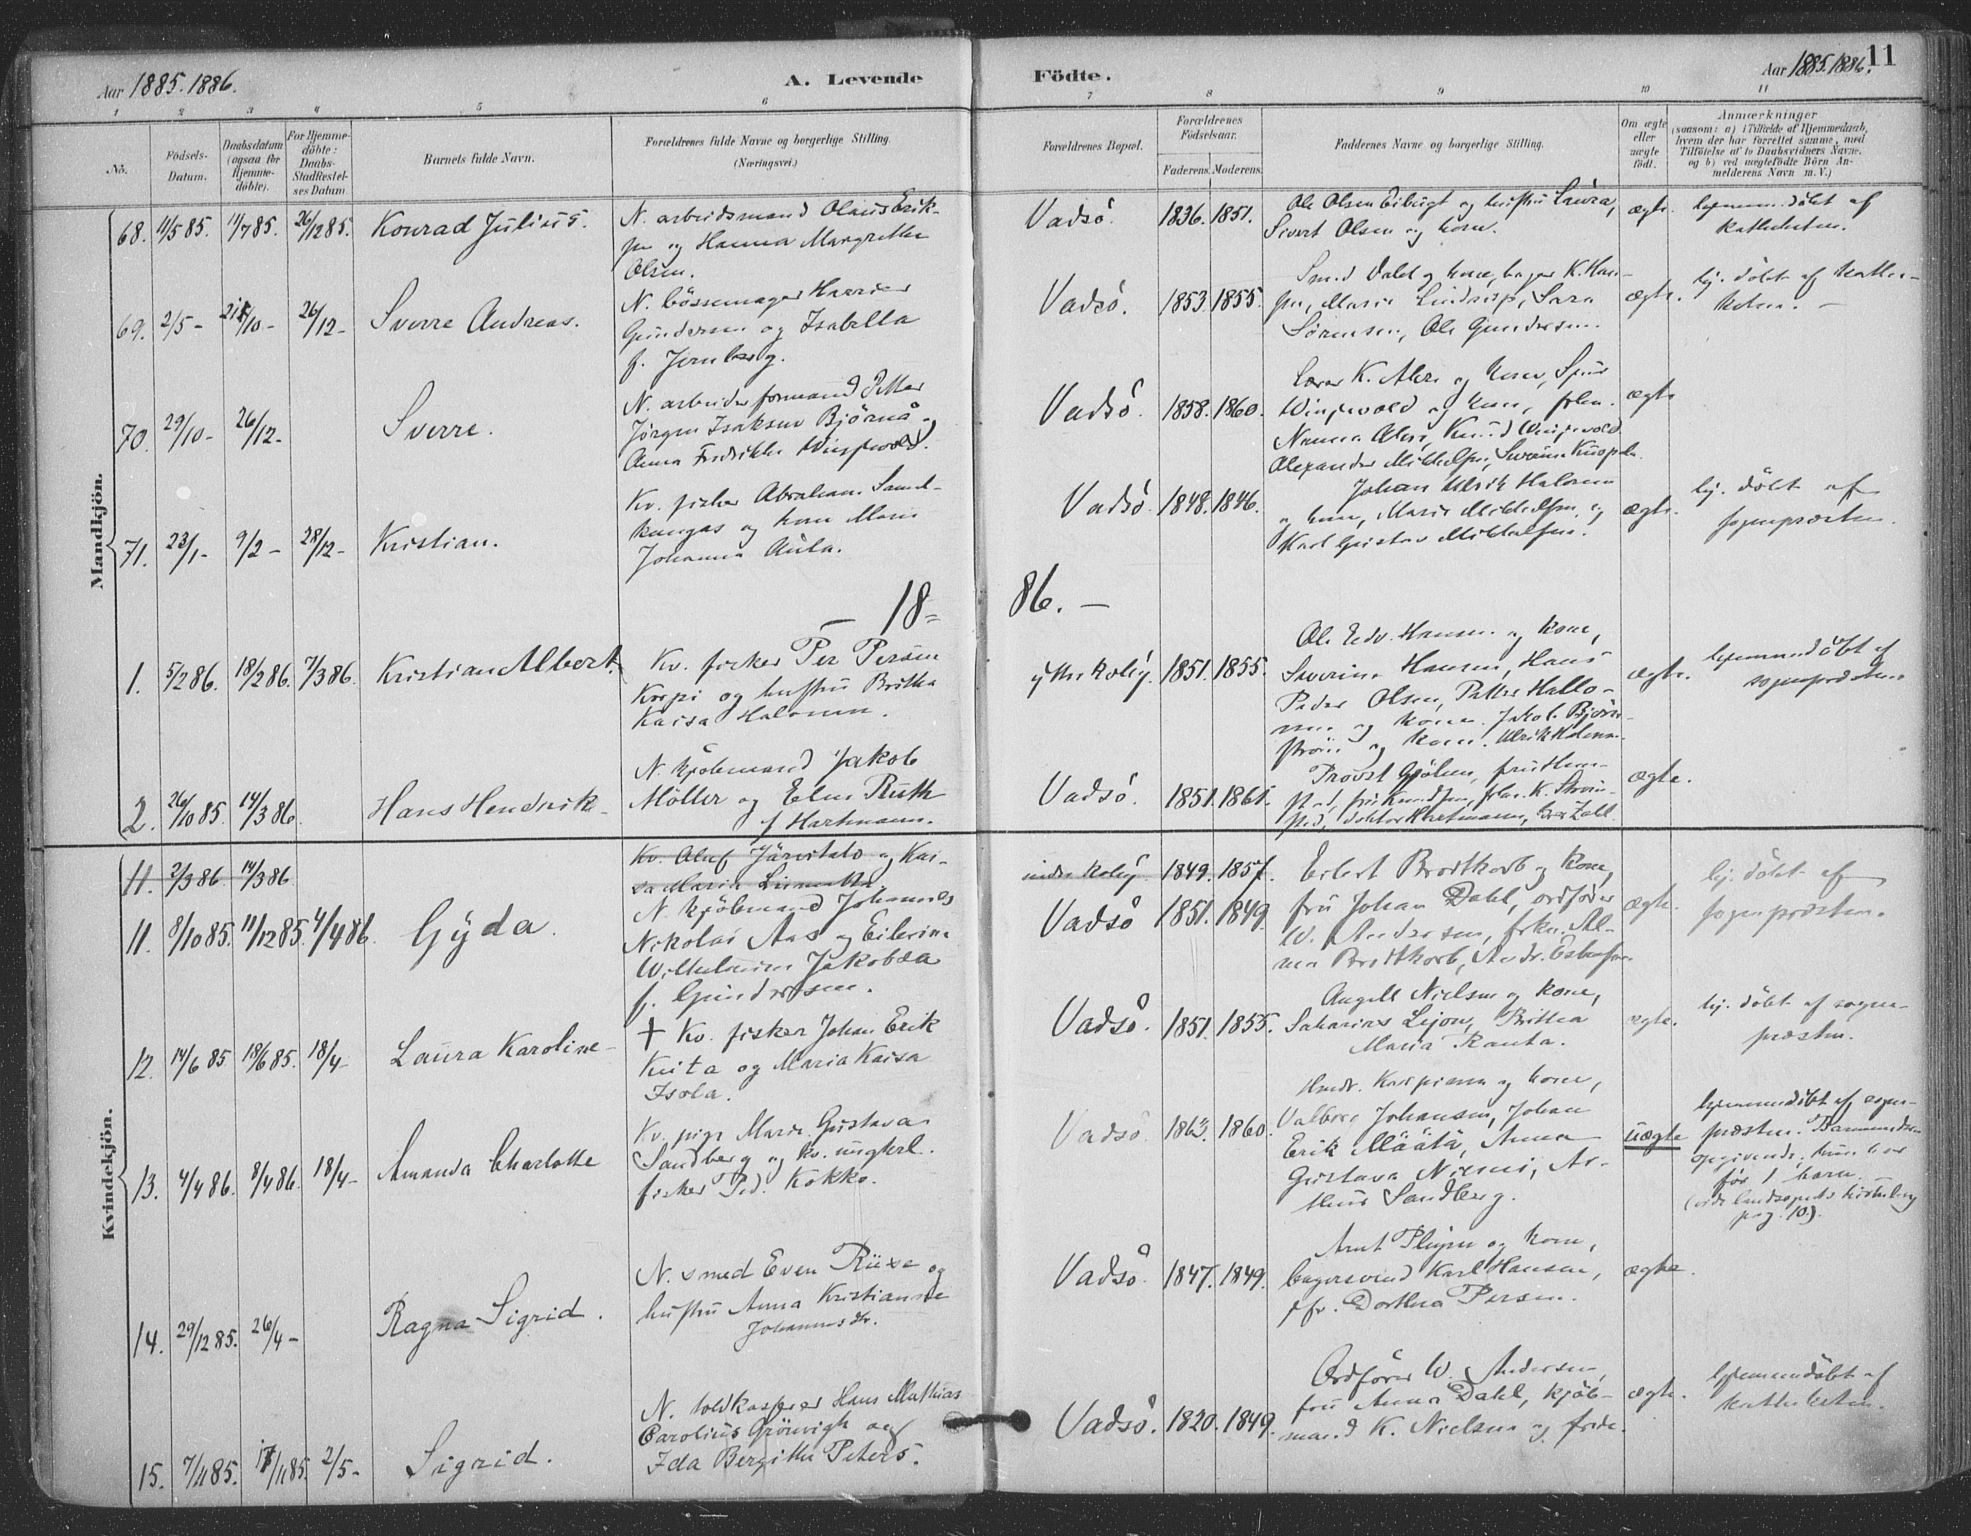 Aar 1885. 1886.
A. Levende
Födte.
Aar 1885. 1886.
11
1 2 3 4 5 6 7 8 9 10 11
No.
Födsels-Datum.
Daabsdatum (ogsaa for Hjemmedöbte).
For Hjemmedöbte: Daabs-Stadfæstelses Datum.
Barnets fulde Navn.
Forældrenes fulde Navne og borgerlige Stilling.
(Næringsvei.)
Forældrenes Bopæl.
Forældrenes Födselsaar.
Faderens. Moderens.
Faddernes Navne og borgerlige Stilling.
Om ægte eller uægte födt.
Anmærkninger
(saasom: a) i Tilfælde af Hjemmedaab, hvem der har forrettet samme, med Tilföielse af to Daabsvidners Navne, og b) ved uægtefödte Börn Anmelderens Navn m. V.)
Mandkjön.
68. 11/5 85. 11/7 85. 26/12 85. Konrad Julius.
N. arbeidsmand Olaus Erik-
sen og Hanna Margrethe
Olsen.
Vadsö. 1836. 1851.
Ole Olsen Bibugt og hustru Laura,
Sivert Olsen og kone.
ægte.
hjemmedöbt af
katheketen.
69. 2/5 - /10 - 26/12 - Sverre Andreas.
N. bössemager
Gundersen og Isabella
f. Jernberg.
Vadsö. 1853. 1855.
Smed Dahl og kone, bager K. Han-
sen, Marie Sara
Sörensen, Ole Gundersen.
ægte.
hj. döbt af kathe-
keten. -
70. 29/10 - 26/12 - Sverre.
N. arbeidsformand Petter
Jörgen Isaksen Björnå og
Anna Fredrikke Wingsvold.
Vadsö. 1858. 1860.
Lærer K. Akre og kone,
Wingsvold og kone, frken.
Nanna Akre, Knud Wingsvold
Alexander Mikkelsen,
ægte
71. 23/1 - 9/2 - 28/12 - Kristian.
Kv. fisker Abraham Sand-
kangas og kone Maria
Johanna Aula.
Vadsö. 1848. 1846.
Johan Ulrik Halonen
og kone, Marie Mikkelsen og
Karl Gustav Mikkelsen.
ægte.
hj. döbt af
sognepræsten.
— 18=
86. —
1. 5/2 86. 18/2 86. 7/3 86. Kristian Albert.
Kv. fisker Per Persen
Korpi og hustru Britha
Kaisa Halonen.
ytre kolig. 1851. 1855.
Ole Edv. Hansen og kone,
Severine Hansen, Hans
Peder Olsen, Petter Hallo-
nen og kone. Jakob Björn-
ström og kone. Ulrik Halonen.
ægte.
hjemmedöbt af
sognepræsten
2. 26/10 85. 14/3 86. Hans Hendrik
N. kjöbmand Jakob
Möller og Elen Ruth
f Hartmann.
Vadsö. 1851. 1861.
Provst Gjölme,
doktor Hartmann, Zahl.
ægte.
Kvindekjön.
11. 2/3 86. 14/3 86
Kv. Oluf Järvitalo og Kai-
sa Maria
indre kolig 1849. 1857.
11. 8/10 85. 11/12 85. 4/4 86. Gyda.
N. kjöbmand Johannes
Nikolai Aas og Eilerine
Wilhelmine Jakobea
f. Gundersen.
Vadsö 1851. 1849.
Erlert Brodtkorb og kone,
fru Johan Dahl, ordförer
W. Andersen, frkn. Al-
ma Brodtkorb, Andr. Esbensen.
ægte.
hj. döbt af
sognepræsten.
12. 14/6 85 18/6 85. 18/4 - Laura Karoline
† Kv. fisker Johan Erik
Keita og Maria Kaisa
Isola.
Vadsö. 1851. 1855.
Angell Nielsen og kone,
Sakarias Lejon, Britha
Maria Ranta.
ægte.
hj. döbt af sogne-
præsten.
13. 4/4 86. 8/4 86. 18/4 - Amanda Charlotte
Kv. pige Maria Gustava
Sandberg og kv. ungkrl.
fisker Ped. Kokko.
Vadsö. 1863. 1860.
Hendr. Karpinen og kone,
Valborg Johansen, Johan
Erik Määtä, Anna
Gustava Niemi, Ar-
thur Sandberg.
uægte
hjemmedöbt af sogne-
præsten. Barnemoderen
opgivende, hun har
för 1 barn.
(vide landsognets kirkebog
pag. 10.).
14. 29/12 85. 26/4 - Ragna Sigrid.
N. smed Even Riise og
hustru Anna Kristianne
Johannesdr.
Vadsö. 1847. 1849.
Arnt og kone,
bagersvend Karl Hansen,
jfr. Dorthea Persen.
ægte.
15. 7/11 85. 17/11 85 2/5 - Sigrid.
N. toldkasserer Hans Mathias
Carolius Grönvigh og
Ida Bergitte Peters.
Vadsö. 1820. 1849.
Ordförer W. Andersen,
fru Anna Dahl, kjöb-
mand K. Nielsen og frue.
ægte.
hjemmedöbt af
katheketen.